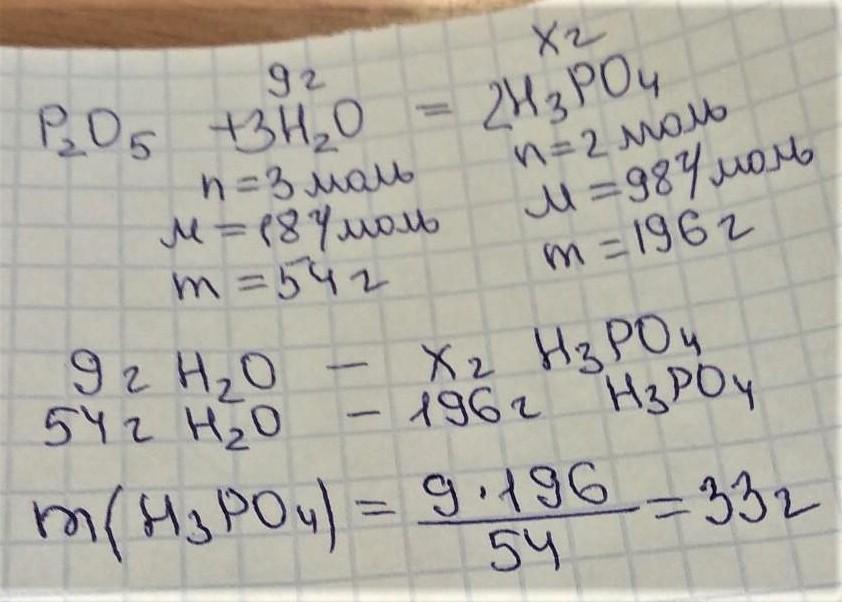 9г хг
P₂O₅ +3H₂O = 2H₃PO₄
n=3 моль n=2 моль
М=18г/моль М=98г/моль
m=54г m=196г
9г H₂O – хг H₃PO₄
54г H₂O – 196г H₃PO₄
m(H₃PO₄) = 9·196/54 = 33г